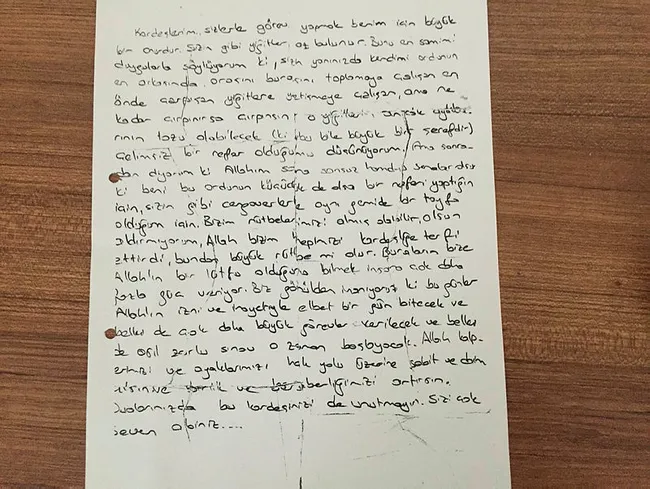 Kardeşlerim, sizlerle görev yapmak benim için büyük
bir onurdur. Sizin gibi yiğitler az bulunur. Bunu en samimi
duygularla söylüyorum ki, sizin yanınızda kendimi ordunun
en arkasında, orasını burasını toplamaya çalışan en
önde çarpışan yiğitlere yetişmeye çalışan, ama ne
kadar çırpınırsa çırpınsın o yiğitlerin ancak
rının tozu olabilecek (ki bu bile büyük bir şereftir)
çelimsiz bir nefer olduğumu düşünüyorum. Ama sonra-
dan diyorum ki Allahım sana sonsuz hamdu senalar olsun
ki beni bu ordunun küçücük de olsa bir neferi yaptığın
için, sizin gibi cengaverlerle aynı gemide bir tayfa
olduğum için. Bizim rütbelerimizi almış olabilir, olsun
aldırmıyorum, Allah bizim hepimizi kardeşliğe terfi
ettirdi, bundan büyük rütbe mi olur. Buraların bize
Allah'ın bir lütfu olduğunu bilmek insana çok daha
fazla güç veriyor. Biz gönülden inanıyoruz ki bu günler
Allah'ın izni ve inayetiyle elbet bir gün bitecek ve
belki de çok daha büyük görevler verilecek ve belki
de asıl zorlu sınav o zaman başlayacak. Allah kalp-
erimizi ve ayaklarımızı hak yolu üzerine sabit ve daim
eylesin ve birlik ve beraberliğimizi artırsın.
Dualarınızda bu kardeşinizi de unutmayın. Sizi çok
seven abiniz....